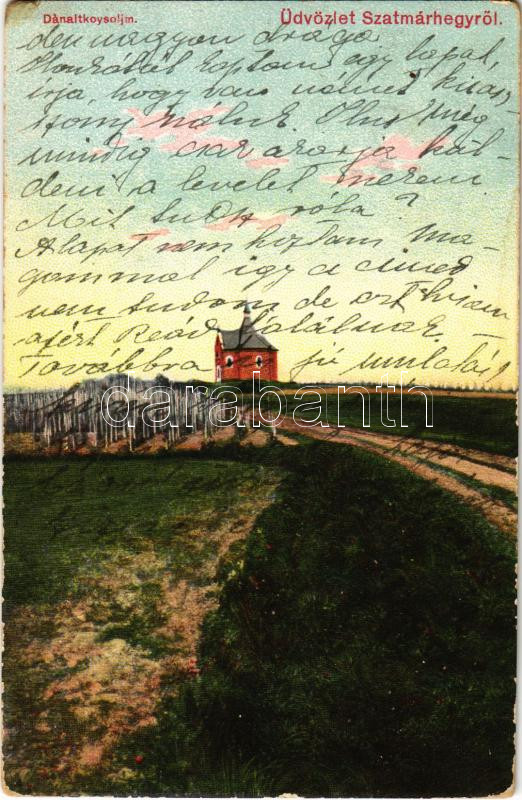 Dànaltkoysoljm.
Üdvözlet Szatmárhegyről.
den nagyon drága
kaptam egy lapot,
írja, hogy van német kisas-
szony náluk. még
mindig csak azt írja kül-
deni a levelet nekem.
Mit tudsz róla?
A lapot nem hoztam ma-
gammal így a címed
nem tudom de azt hiszem
azért Reád találnak
Továbbra jó mulatást
darabanth